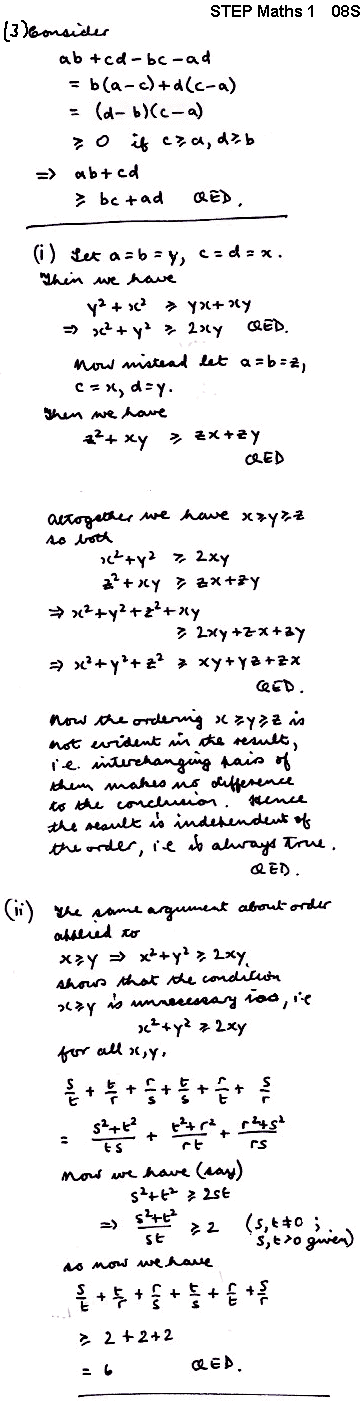 STEP Maths 1 08S
(3) Consider
ab + cd - bc - ad
= b(a-c) + d(c-a)
= (d-b)(c-a)
≥ 0 if c≥a, d≥b
⇒ ab + cd
≥ bc + ad QED.
(i) Let a=b=y, c=d=x.
Then we have
y² + x² ≥ yx + xy
⇒ x² + y² ≥ 2xy QED.
Now instead let a=b=z,
c=x, d=y.
Then we have
z² + xy ≥ zx + zy
QED
Altogether we have x≥y≥z
so both
x² + y² ≥ 2xy
z² + xy ≥ zx + zy
⇒ x² + y² + z² + xy
≥ 2xy + zx + zy
⇒ x² + y² + z² ≥ xy + yz + zx
QED.
Now the ordering x≥y≥z is
not evident in the result,
i.e. interchanging pairs of
them makes no difference
to the conclusion. Hence
the result is independent of
the order, i.e is always true.
QED.
(ii) The same argument about order
applied to
x≥y ⇒ x² + y² ≥ 2xy
shows that the condition
x≥y is unnecessary too, i.e
x² + y² ≥ 2xy
for all x, y.
s/t + t/r + r/s + t/s + r/t + s/r
= (s²+t²)/ts + (t²+r²)/rt + (r²+s²)/rs
Now we have (say)
s² + t² ≥ 2st
⇒ (s²+t²)/st ≥ 2 (s,t ≠ 0 ;
s,t > 0 given)
so now we have
s/t + t/r + r/s + t/s + r/t + s/r
≥ 2 + 2 + 2
= 6 QED.